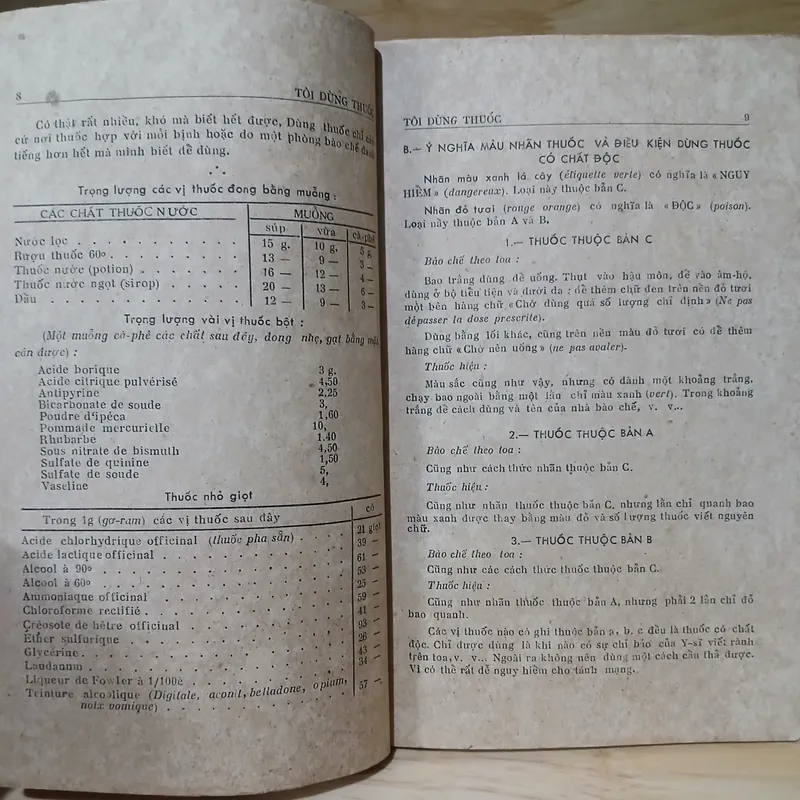 8 TÔI DÙNG THUỐC
Có thật rất nhiều, khó mà biết hết được, Dùng thuốc chỉ căn
cứ nơi thuốc hợp với mỗi bịnh hoặc do một phòng bào chế
tiếng hơn hết mà mình biết để dùng.
Trọng lượng các vị thuốc đong bằng muỗng :
CÁC CHẤT THUỐC NƯỚC MUỖNG
súp vừa cà-phê
Nước lọc . . . . . . . . . . . 15 g. 10 g. 5 g.
Rượu thuốc 60o . . . . . . . . . 13 — 9 — 3 —
Thuốc nước (potion) . . . . . . . 16 — 12 — 4 —
Thuốc nước ngọt (sirop) . . . . . . 20 — 13 — 6 —
Dầu . . . . . . . . . . . . 12 — 9 — 3 —
Trọng lượng vài vị thuốc bột :
(Một muỗng cà-phê các chất sau đêy, dong nhẹ, gạt bằng mặt
cân được) :
Acide borique 3 g.
Acide citrique pulvérisé 4,50
Antipyrine 2,25
Bicarbonate de soude 3,
Poudre d'ipéca 1,60
Pommade mercurielle 10,
Rhubarbe 1.40
Sous nitrate de bismuth 4,50
Sulfate de quinine 1,50
Sulfate de soude 5,
Vaseline 4,
Thuốc nhỏ giọt
Trong 1g (gơ-ram) các vị thuốc sau đây có
Acide chlorhydrique officinal (thuốc pha sẵn) . 21 giọt
Acide lactique officinal . . . . . . . 39 —
Alcool à 90o . . . . . . . . . . 61 —
Alcool à 60o . . . . . . . . . . 53 —
Ammoniaque officinal . . . . . . . 25 —
Chloroforme rectifié . . . . . . . . 59 —
Créosote de hêtre officinal . . . . . . 41 —
Éther sulfurique . . . . . . . . . 93 —
Glycérine . . . . . . . . . . . 26 —
Laudanum . . . . . . . . . . . 43 —
Liqueur de Fowler à 1/100è . . . . . . 34 —
Teinture alcoolique (Digitale, aconit, belladone, opium,
noix vomique) . . . . . . . . . 57 —
TÔI DÙNG THUỐC 9
B.— Ý NGHĨA MÀU NHÃN THUỐC VÀ ĐIỀU KIỆN DÙNG THUỐC
CÓ CHẤT ĐỘC
Nhãn màu xanh lá cây (étiquette verte) có nghĩa là «NGUY
HIỂM» (dangereux). Loại này thuộc bản C.
Nhãn đỏ tươi (rouge orange) có nghĩa là «ĐỘC» (poison).
Loại này thuộc bản A và B.
1.— THUỐC THUỘC BẢN C
Bào chế theo toa :
Bao trắng dùng để uống. Thụt vào hậu môn, để vào âm-hộ,
dùng ở bộ tiểu tiện và dưới da : để thêm chữ đen trên nền đỏ tươi
một bên hàng chữ «Chớ dùng quá số lượng chỉ định» (Ne pas
dépasser la dose prescrite).
Dùng bằng lối khác, cũng trên nền màu đỏ tươi có để thêm
hàng chữ «Chớ nên uống» (ne pas avaler).
Thuốc hiệu :
Màu sắc cũng như vậy, nhưng có dành một khoảng trắng,
chạy bao ngoài bằng một lằn chỉ màu xanh (vert). Trong khoảng
trắng để cách dùng và tên của nhà bào chế, v. v...
2.— THUỐC THUỘC BẢN A
Bào chế theo toa :
Cũng như cách thức nhãn thuộc bản C.
Thuốc hiệu :
Cũng như nhãn thuốc thuộc bản C, nhưng lằn chỉ quanh bao
màu xanh được thay bằng màu đỏ và số lượng thuốc viết nguyên
chữ.
3.— THUỐC THUỘC BẢN B
Bào chế theo toa :
Cũng như các cách thức thuốc thuộc bản C.
Thuốc hiệu :
Cũng như nhãn thuốc thuộc bản A, nhưng phải 2 lằn chỉ đỏ
bao quanh.
Các vị thuốc nào có ghi thuộc bản a, b, c đều là thuốc có chất
độc. Chỉ được dùng là khi nào có sự chỉ bảo của Y-sĩ viết rành
trên toa, v. v... Ngoài ra không nên dùng một cách cẩu thả được.
Vì có thể rất dễ nguy hiểm cho tánh mạng.